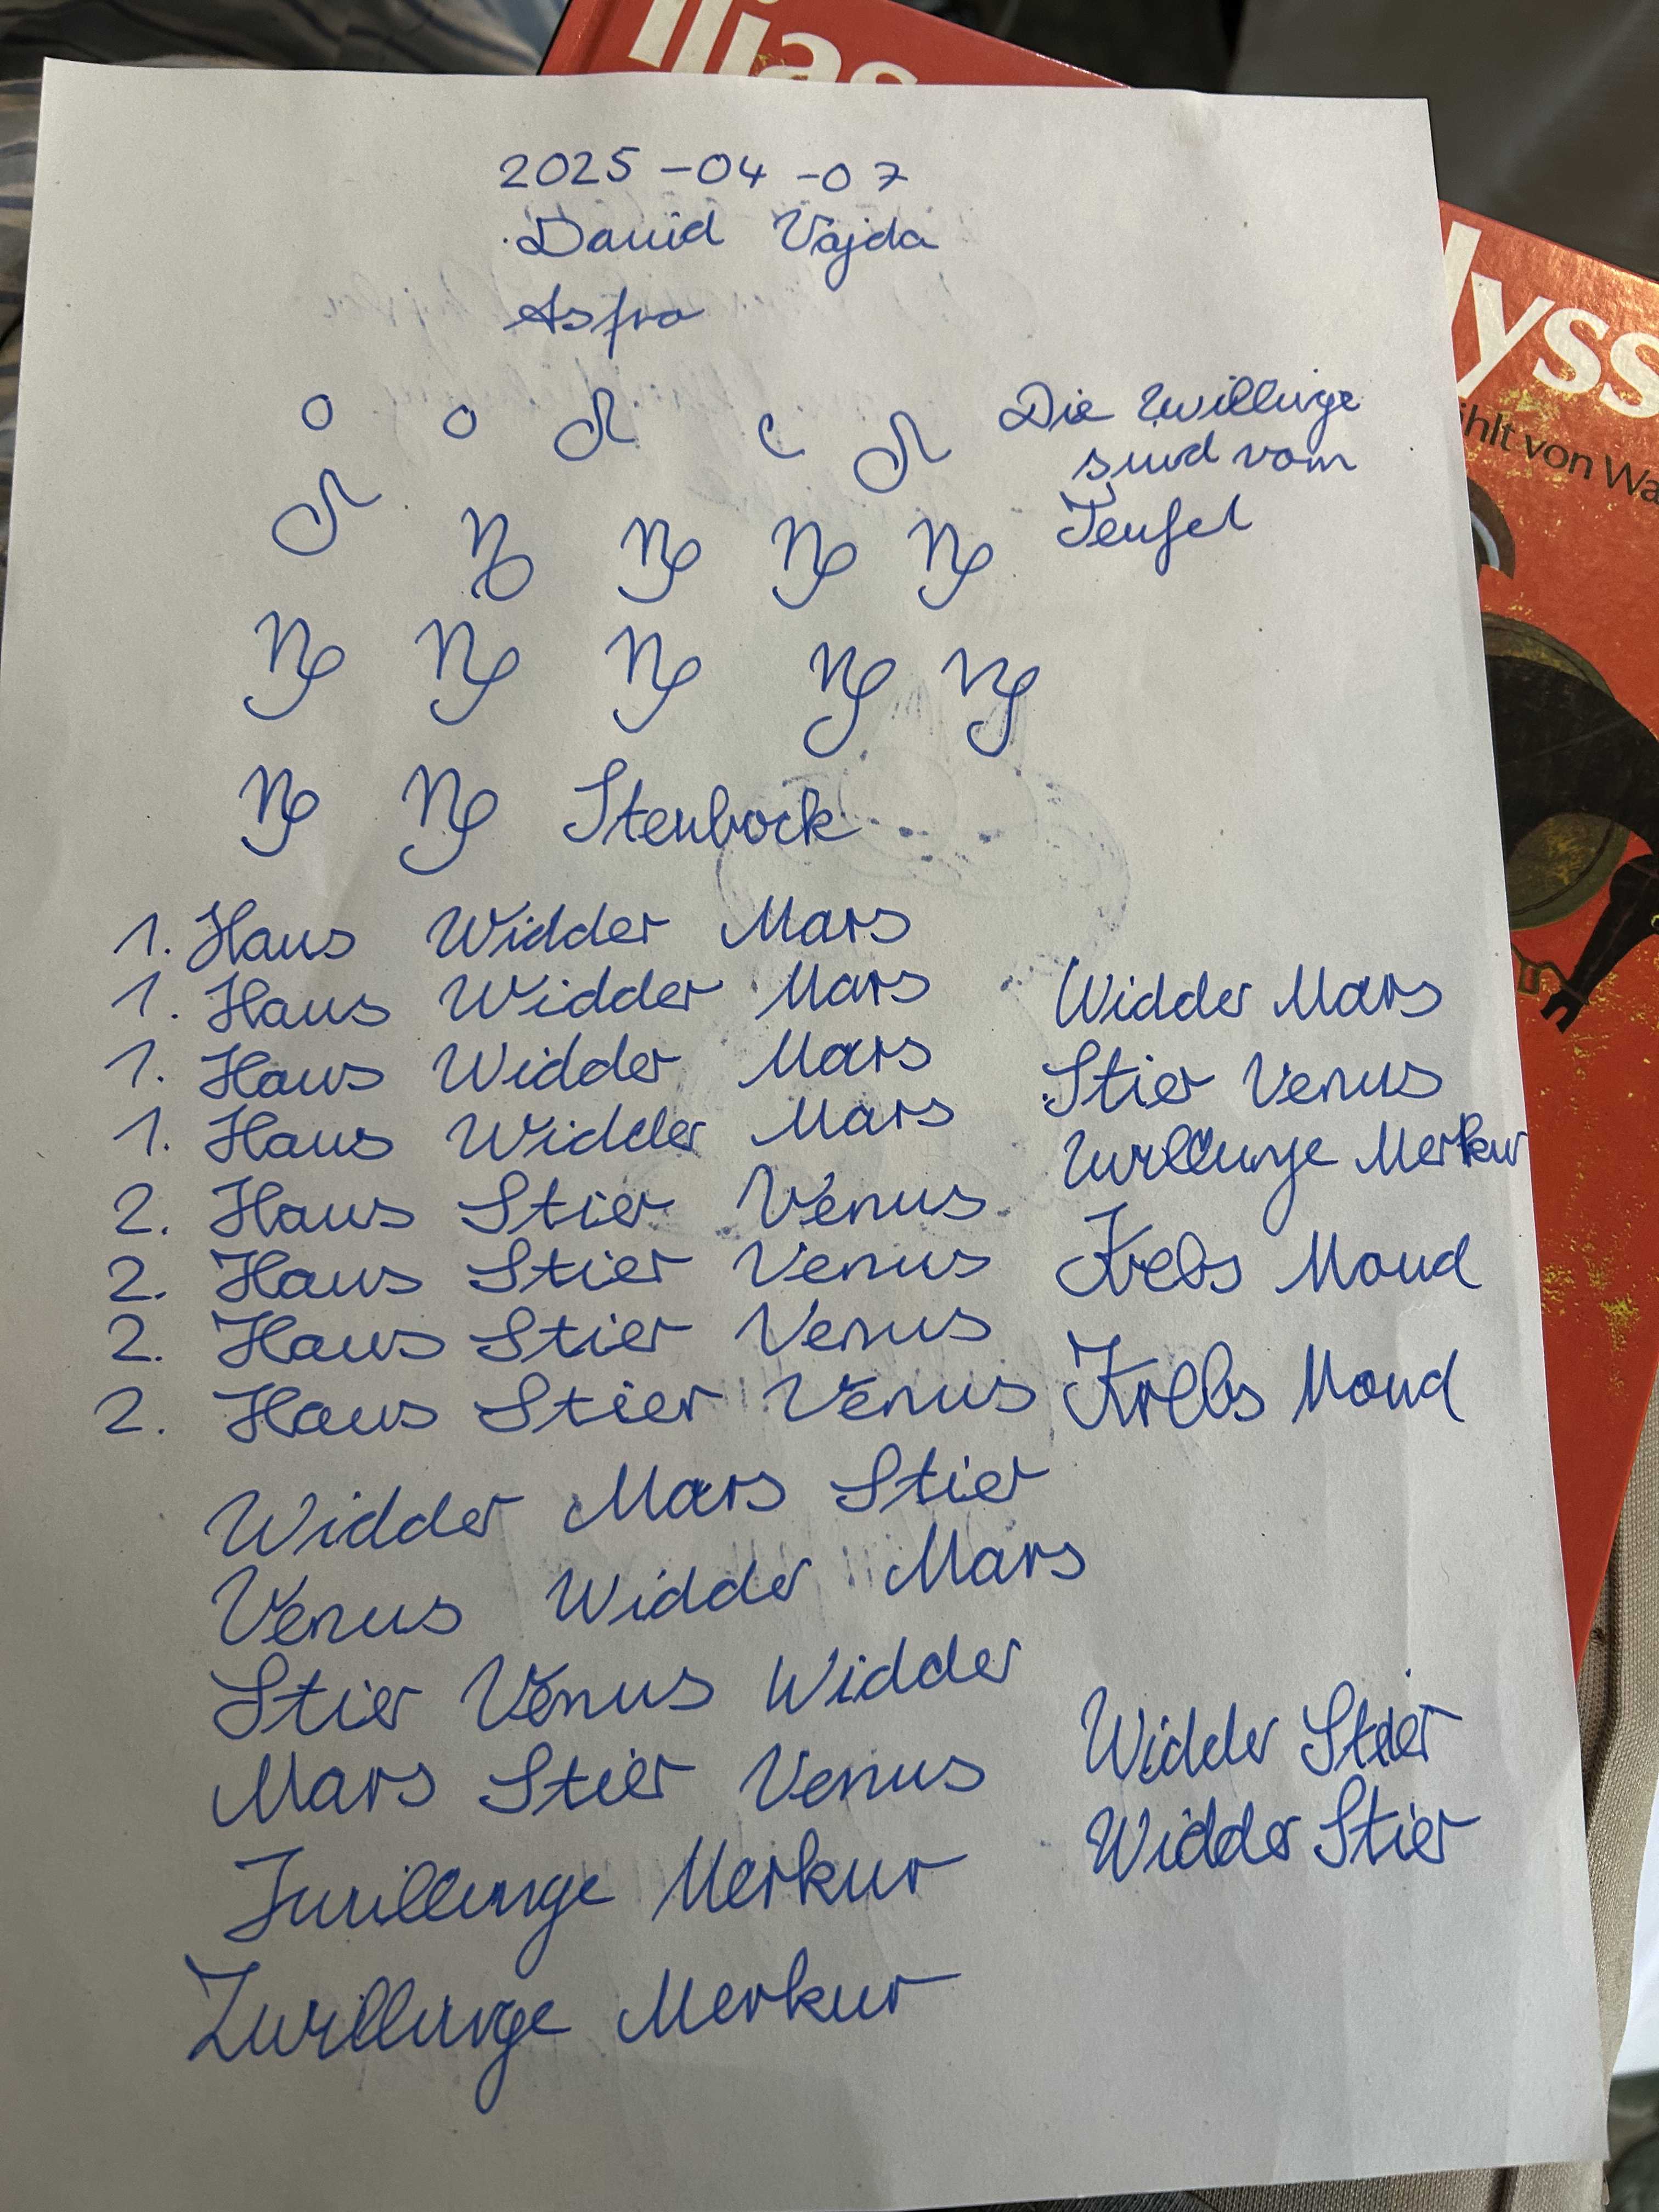 Ilias
lyss
hlt von Wa
2025-04-07
David Vajda
Astro
Die Zwillinge
sind vom
Teufel
♑ ♑ ♑ ♑
♑ ♑ ♑ ♑ ♑
♑ ♑ Stenbock
1. Haus Widder Mars
1. Haus Widder Mars
1. Haus Widder Mars
1. Haus Widder Mars
2. Haus Stier Venus
2. Haus Stier Venus
2. Haus Stier Venus
2. Haus Stier Venus
Widder Mars
Stier Venus
Zwillinge Merkur
Krebs Mond
Krebs Mond
Widder Mars Stier
Venus Widder Mars
Stier Venus Widder
Mars Stier Venus
Zwillinge Merkur
Zwillinge Merkur
Widder Stier
Widder Stier